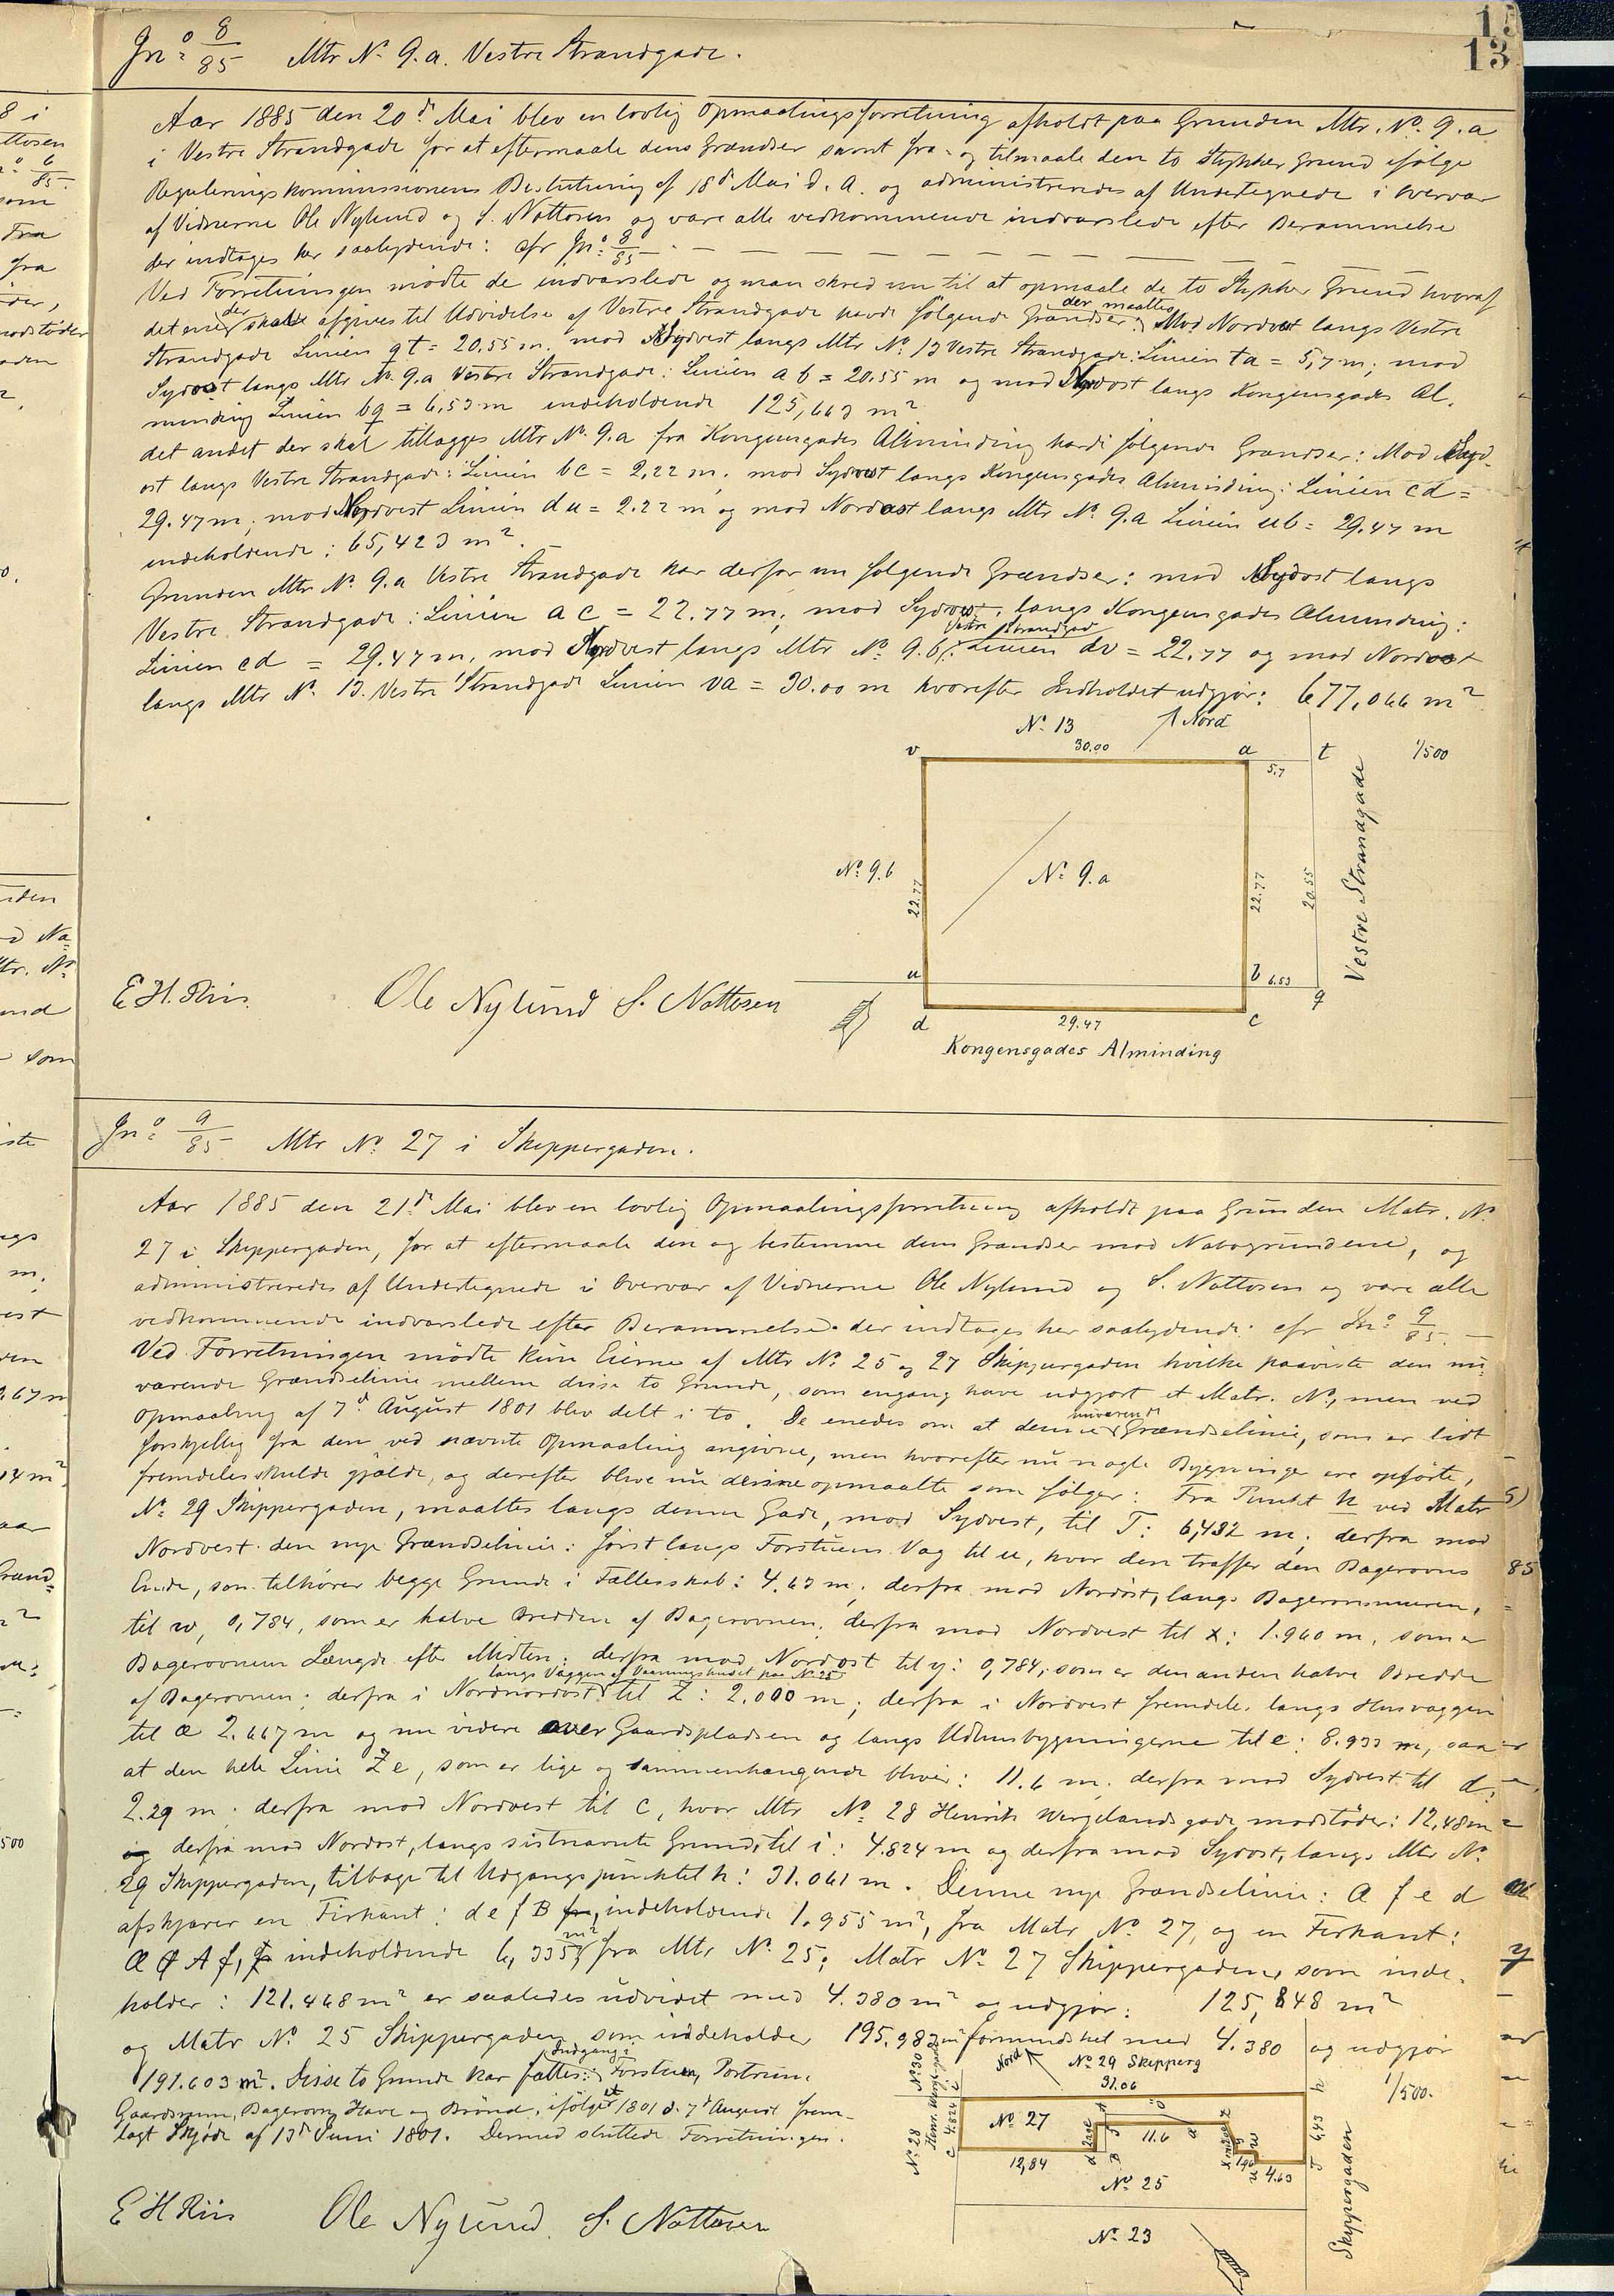 15
13
Jn.º 8/85 Mtr Nº 9.a. Vestre Strandgade.
Aar 1885 den 20.d Mai blev en lovlig Opmaalingsforretning afholdt paa Grunden Mtr. Nº 9.a
i Vestre Strandgade for at eftermaale dens Grændser samt fra- og tilmaale den to Stykker Grund ifølge
Reguleringskommissionens Beslutning af 18d Mai d. A. og administreredes af Undertegnede i Overvær
af Vidnerne Ole Nylund og S. Nottosen og vare alle vedkommende indvarslede efter Berammelse
der indtages her saalydende: cfr Jn.º 8/85.
Ved Forretningen mødte de indvarslede og man skred nu til at opmaale de to Stykker Grund hvoraf
det ene der skal afgives til Udvidelse af Vestre Strandgade havde følgende Grændser, der maaltes: Mod Nordost langs Vestre
Strandgade Linien qt = 20.55 m. mod Nordvest langs Mtr Nº 13 Vestre Strandgade: Linien ta = 5,7 m; mod
Sydvest langs Mtr Nº 9.a Vestre Strandgade: Linien ab = 20.55 m og mod Sydost langs Kongensgades Al-
minding Linien bq = 6,53 m indeholdende 125,663 m²
det andet der skal tillægges Mtr Nº 9.a fra Kongensgades Alminding havde følgende Grændser: Mod Syd-
ost langs Vestre Strandgade: Linien bc = 2,22 m. mod Sydvest langs Kongensgades Alminding: Linien cd =
29.47 m; mod Nordvest Linien du = 2.22 m og mod Nordost langs Mtr Nº 9.a Linien ub = 29.47 m
indeholdende: 65,423 m².
Grunden Mtr Nº 9.a Vestre Strandgade har derfor nu følgende Grændser: mod Sydost langs
Vestre Strandgade: Linien ac = 22.77 m; mod Sydvest langs Kongensgades Alminding:
Linien cd = 29.47 m, mod Nordvest langs Mtr Nº 9.b Vestre Strandgad: Linien dv = 22.77 og mod Nordost
langs Mtr Nº 13. Vestre Strandgade Linien va = 30.00 m hvorefter Indholdet udgjør: 677,066 m²
Nº 13
Nord
v 30.00 a t
5.7
1/500
Nº 9.b
22.77
Nº 9.a
22.77
20.55
Vestre Strandgade
u b 6.53 q
d 29.47 c
Kongensgades Alminding
E. H. Riis. Ole Nylund S. Nottosen
Jn.º 9/85 Mtr Nº 27 i Skippergaden.
Aar 1885 den 21.d Mai blev en lovlig Opmaalingsforretning afholdt paa Grunden Matr. Nº
27 i Skippergaden, for at eftermaale den og bestemme dens Grændser mod Nabogrundene, og
administreredes af Undertegnede i Overvær af Vidnerne Ole Nylund og S. Nottosen og vare alle
vedkommende indvarslede efter Berammelse der indtages her saalydende: cfr Jn.º 9/85.
Ved Forretningen mødte kun Eierne af Mtr Nº 25 og 27 Skippergaden hvilke paaviste den nu-
værende Grændselinie mellem disse to Grunde, som engang have udgjort et Matr. Nº, men ved
Opmaaling af 7d August 1801 blev delt i to. De enedes om at denne nuværende Grændselinie, som er lidt
forskjellig fra den ved nævnte Opmaaling angivne, men hvorefter nu nogle Bygninger ere opførte,
fremdeles skulde gjælde, og derefter bleve nu denne opmaalte som følger: Fra Punkt h ved Matr
Nº 29 Skippergaden, maaltes langs denne Gade, mod Sydvest, til T: 6,432 m; derfra mod
Nordvest den nye Grændselinie: først langs Forstuens Væg til u, hvor den træffer den Bagerovns
Ende, som tilhører begge Grunde i Fællesskab: 4.63 m; derfra mod Nordost, langs Bagerovnsmuren,
til w, 0,784, som er halve Bredden af Bagerovnen; derfra mod Nordvest til x: 1.960 m, som er
Bagerovnens Længde efter Midten; derfra mod Nordost til y: 0,784, som er den anden halve Bredde
af Bagerovnen; derfra i Nordnordost langs Væggen af Vaaningshuset paa Nº 25 til Z: 2.000 m; derfra i Nordvest fremdeles langs Husvæggen
til æ 2.667 m og nu videre over Gaardspladsen og langs Udhusbygningerne til e: 8.933 m, saa
at den hele Linie Ze, som er lige og sammenhængende bliver: 11.6 m; derfra mod Sydvest til d:
2.29 m; derfra mod Nordvest til C, hvor Mtr Nº 28 Henrik Wergelandsgade modstøder: 12,48 m
og derfra mod Nordost, langs sistnævnte Grund, til i: 4.824 m og derfra mod Sydost, langs Mtr Nº
29 Skippergaden, tilbage til Udgangspunktet h: 31.061 m. Denne nye Grændselinie: a f e d
afskjærer en Firkant: d e f B, indeholdende 1.955 m², fra Matr Nº 27, og en Firkant:
Æ Ø A f, indeholdende 6,335 m² fra Mtr Nº 25; Matr Nº 27 Skippergaden, som inde-
holder: 121.468 m² er saaledes udvidet med 4.380 m² og udgjør: 125,848 m²
og Matr Nº 25 Skippergaden som inddeholder 195.983 m² formindsket med 4.380 og udgjør
191.603 m². Disse to Grunde har fælles: Indgang: Forstue, Portrum,
Gaardsrum, Bagerovn, Have og Brønd, ifølge et 1801 d. 7d August frem-
lagt Skjøde af 13d Juni 1801. Dermed sluttede Forretningen.
E H Riis Ole Nylund. S. Nottosen
Nord
Nº 29 Skipperg
31.06
h
1/500.
Nº 30
Nº 28
C 4.824 i
Nº 27
11.6
12,84
4.63
T 6,43
Nº 25
Nº 23
Skippergaden